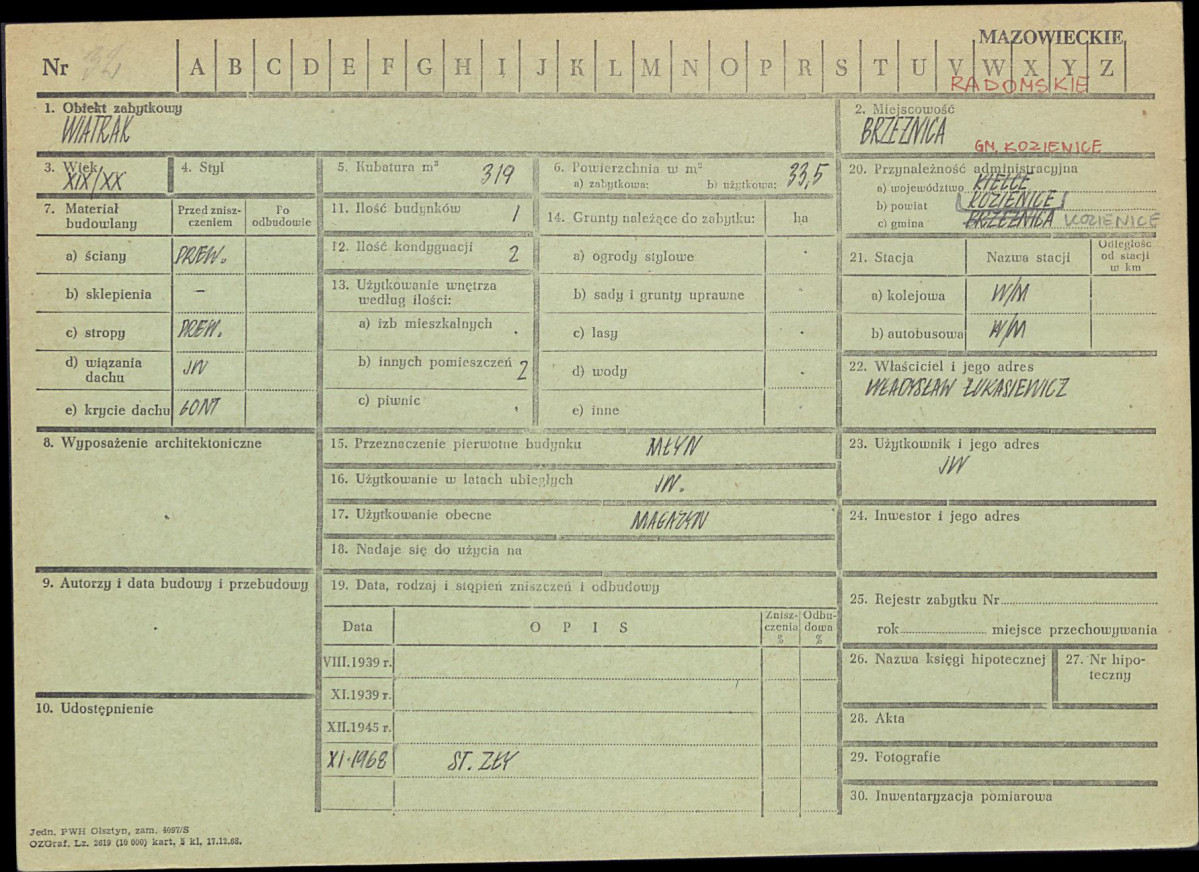 MAZOWIECKIE
Nr 32 A B C D E F G H I J K L M N O P R S T U V W X Y Z
RADOMSKIE
1. Obiekt zabytkowy
WIATRAK
2. Miejscowość
BRZEŹNICA
GM. KOZIENICE
3. Wiek
XIX/XX
4. Styl
5. Kubatura m³ 319
6. Powierzchnia w m²
a) zabytkowa: b) użytkowa: 33,5
20. Przynależność administracyjna
a) województwo KIELCE
b) powiat KOZIENICE
c) gmina BRZEŹNICA KOZIENICE
7. Materiał budowlany
Przed znisz-
czeniem
Po
odbudowie
a) ściany DREW.
b) sklepienia –
c) stropy DREW.
d) wiązania
dachu JW
e) krycie dachu GONT
11. Ilość budynków 1
12. Ilość kondygnacji 2
13. Użytkowanie wnętrza
według ilości:
a) izb mieszkalnych .
b) innych pomieszczeń 2
c) piwnic .
14. Grunty należące do zabytku: ha
a) ogrody stylowe
b) sady i grunty uprawne
c) lasy
d) wody
e) inne
21. Stacja Nazwa stacji
Odległość
od stacji
w km
a) kolejowa W/M
b) autobusowa W/M
22. Właściciel i jego adres
WŁADYSŁAW ŁUKASIEWICZ
8. Wyposażenie architektoniczne
15. Przeznaczenie pierwotne budynku MŁYN
16. Użytkowanie w latach ubiegłych JW.
17. Użytkowanie obecne MAGAZYN
18. Nadaje się do użycia na
23. Użytkownik i jego adres
JW
24. Inwestor i jego adres
9. Autorzy i data budowy i przebudowy
19. Data, rodzaj i stopień zniszczeń i odbudowy
Data OPIS
Znisz-
czenia
%
Odbu-
dowa
%
VIII.1939 r.
XI.1939 r.
XII.1945 r.
XI.1968 ST. ZŁY
25. Rejestr zabytku Nr
rok miejsce przechowywania
26. Nazwa księgi hipotecznej
27. Nr hipo-
teczny
10. Udostępnienie
28. Akta
29. Fotografie
30. Inwentaryzacja pomiarowa
Jedn. PWH Olsztyn, zam. 4097/S
OZGraf. Lz. 2619 (10 000) kart. 5 kl. 17.12.68.